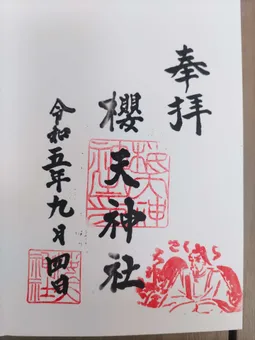 奉拝
櫻天神社
令和五年九月四日
さくら